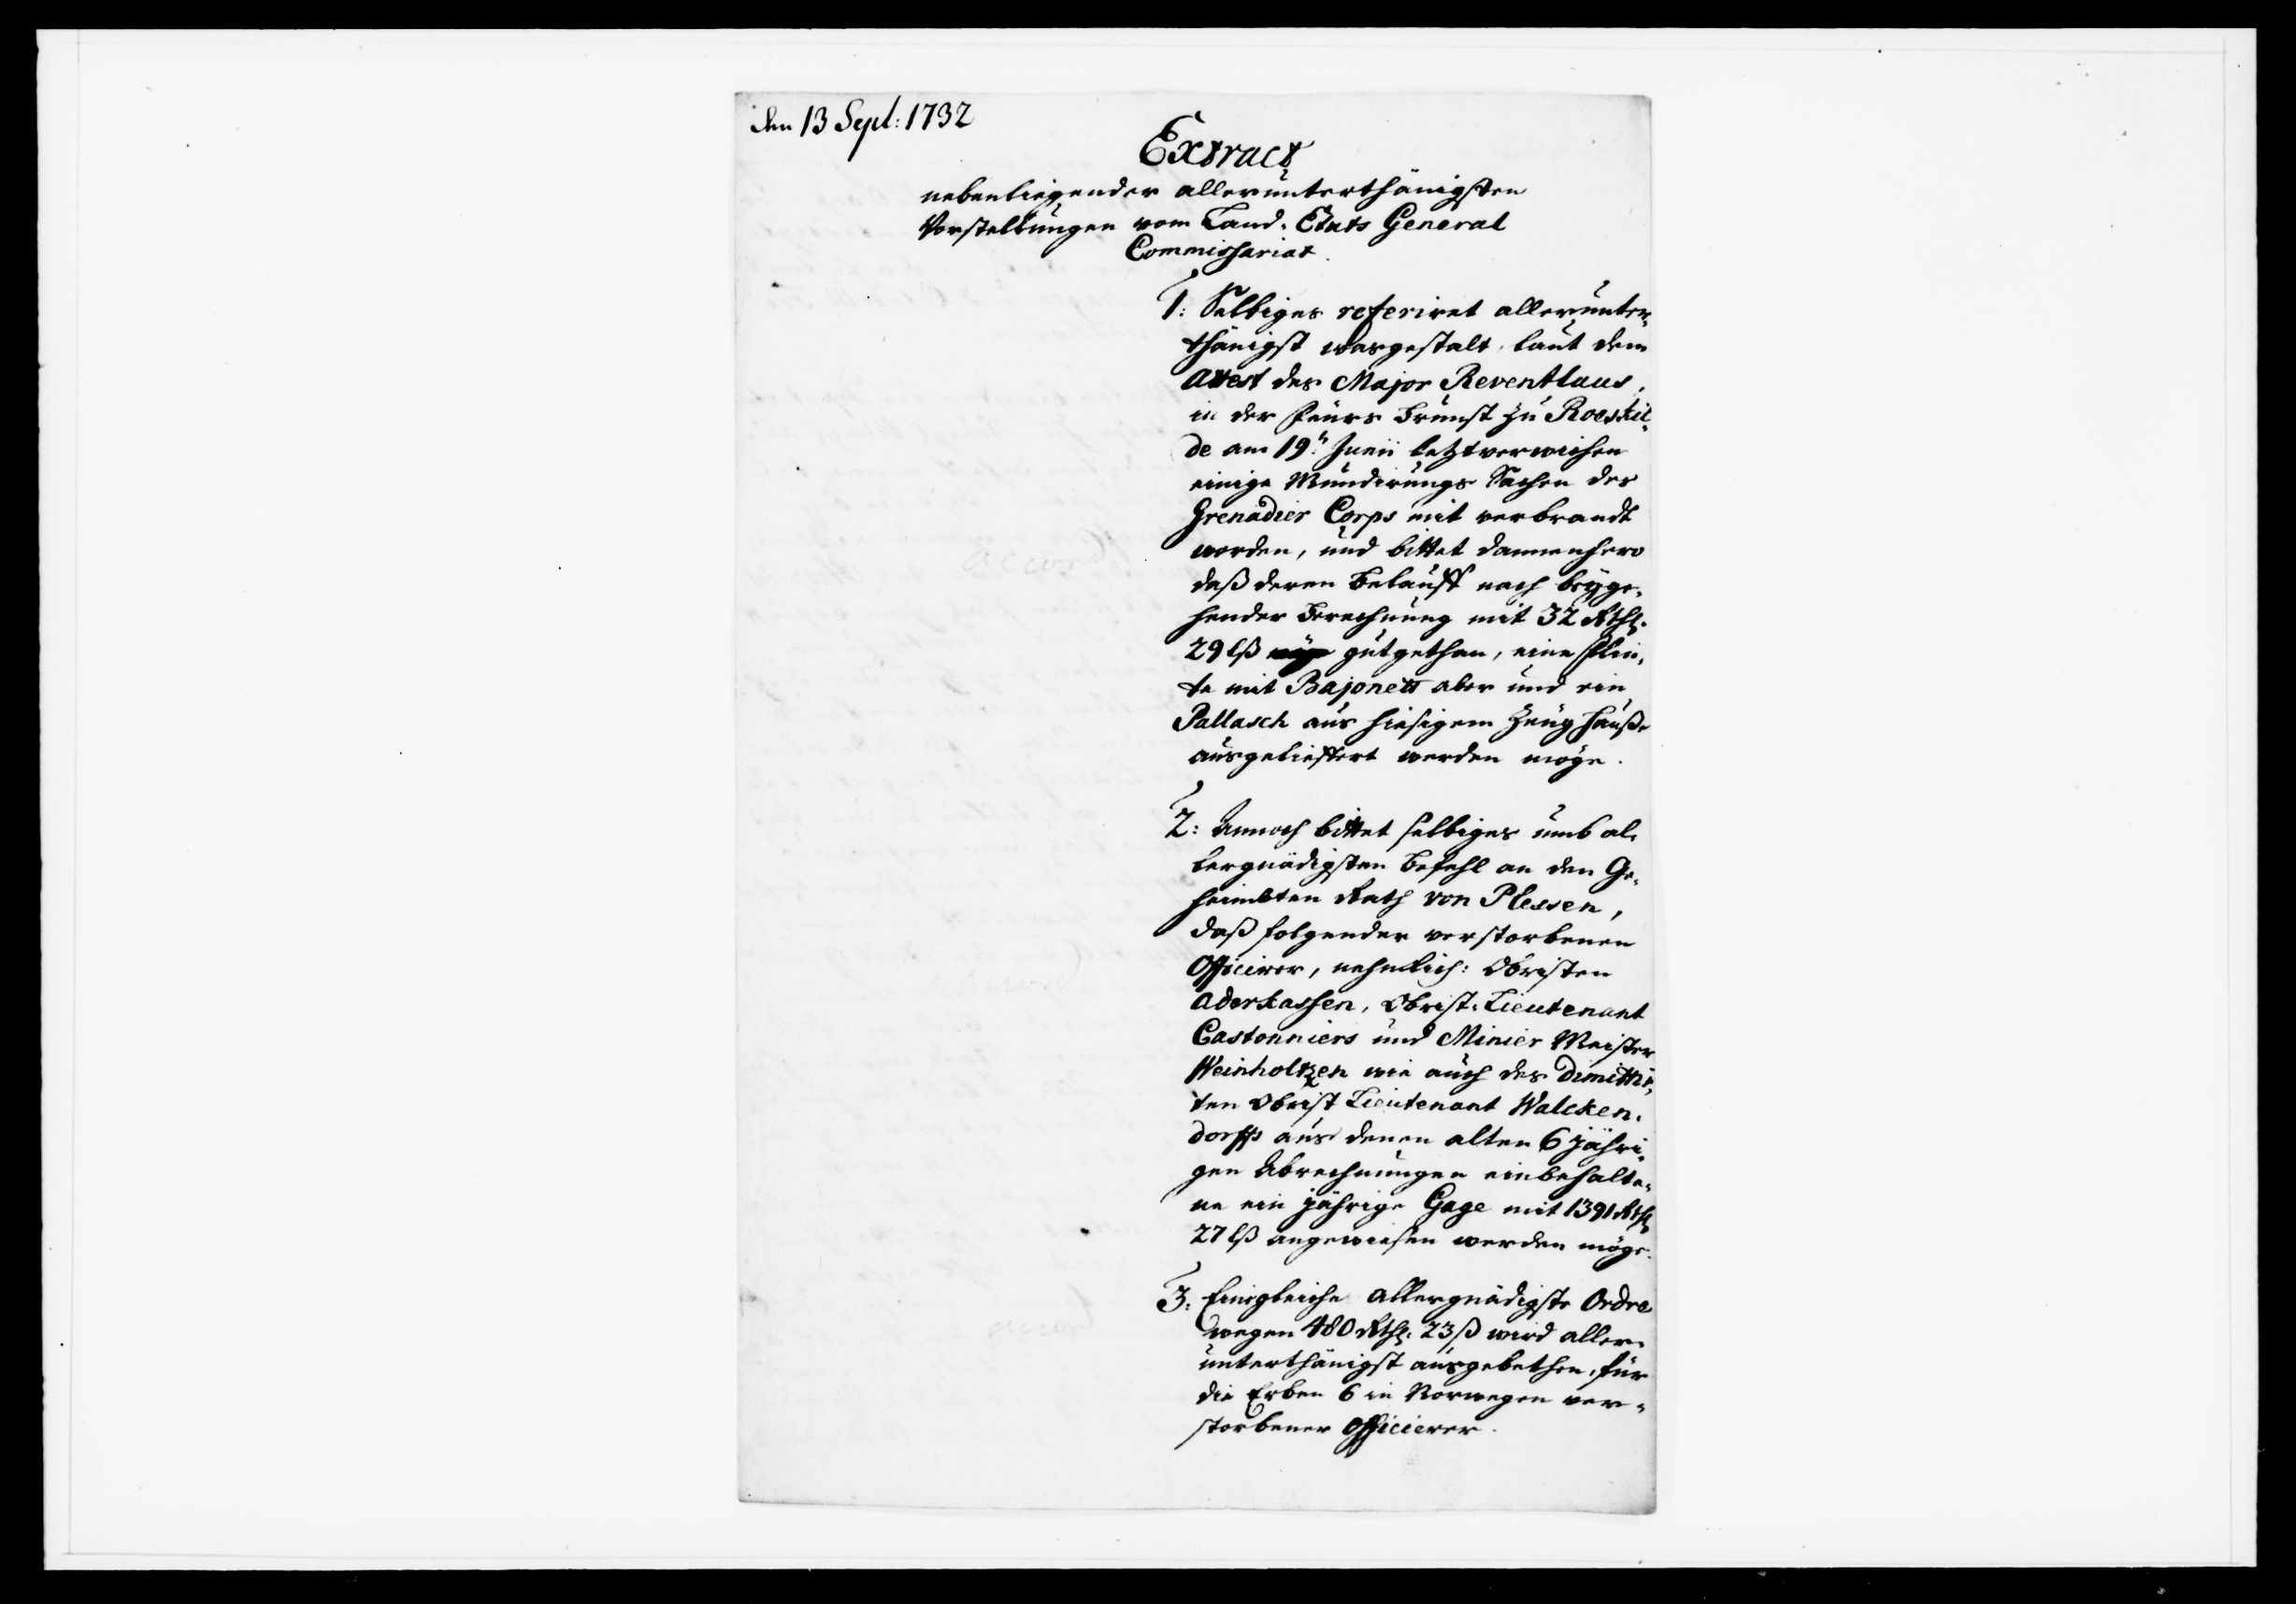 den 13 Sept: 1732
Extract
nebenliegender allerunterthänigsten
Vorstellungen vom Land-Etats General
Commissariat.
1: Selbiges referiret allerunter-
thänigst wasgestalt, laut dem
Attest des Major Reventlaus,
in der Feürs Brunst zu Roeskil-
de am 19ⁿ Junii letztverwichen
einige Mundirungs Sachen des
Grenadier Corps mit verbrandt
worden, und bittet dannenhero
daß deren Belauff nach beyge-
hender Berechnung mit 32 Rthl.
29 lß gutgethan, eine Flin-
te mit Bajonett aber und ein
Pallasch aus hiesigem Zeughauße
ausgelieffert werden möge.
2: Annoch bittet selbiges umb al-
lergnädigsten Befehl an den Ge-
heimbten Rath von Plessen,
daß folgender verstorbenen
Officirer, nehmlich: Obristen
Aderkassen, Obrist-Lieutenant
Castonniers und Minier Meister
Weinholtzen wie auch des dimitti-
ten Obrist Lieutenant Walcken-
dorffs aus denen alten 6 jähri-
gen Abrechnungen einbehalte-
ne ein jährige Gage mit 1391 Rthl
27 lß angewiesen werden möge.
3: Eingleiche allergnädigste Ordre
wegen 480 Rthl. 23 ß wird aller-
unterthänigst ausgebethen, für
die Erben 6 in Norwegen ver-
storbener Officierer.